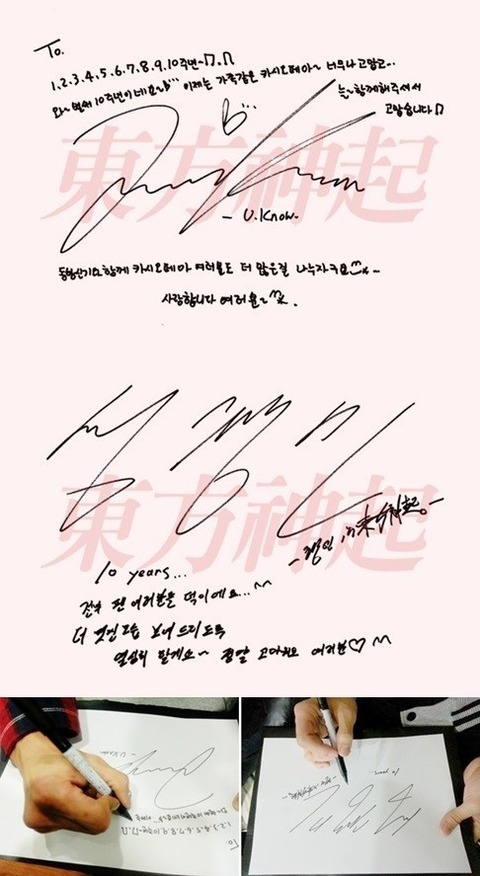 To.
1.2.3.4.5.6.7.8.9.10주년~♫.♫
와~ 벌써 10주년이네요~♪''' 이제는 가족같은 카시오페아~ 너무나 고맙고..
늘~함께해주셔서
고맙습니다♫
東方神起
- U.Know.
동방신기와 함께 카시오페아 여러분도 더 많은걸 나누자구요^^~
사랑합니다 여러분~^^.
東方神起
-챙민 in 東方神起。-
10 years...
전부 팬 여러분들 덕이에요...^^
더 멋진 모습 보여 드리도록
열심히 할게요~ 정말 고마워요 여러분♡^^
- U.Know.
1.2.3.4.5.6.7.8.9.10주년~♫.♫
To.
10 years